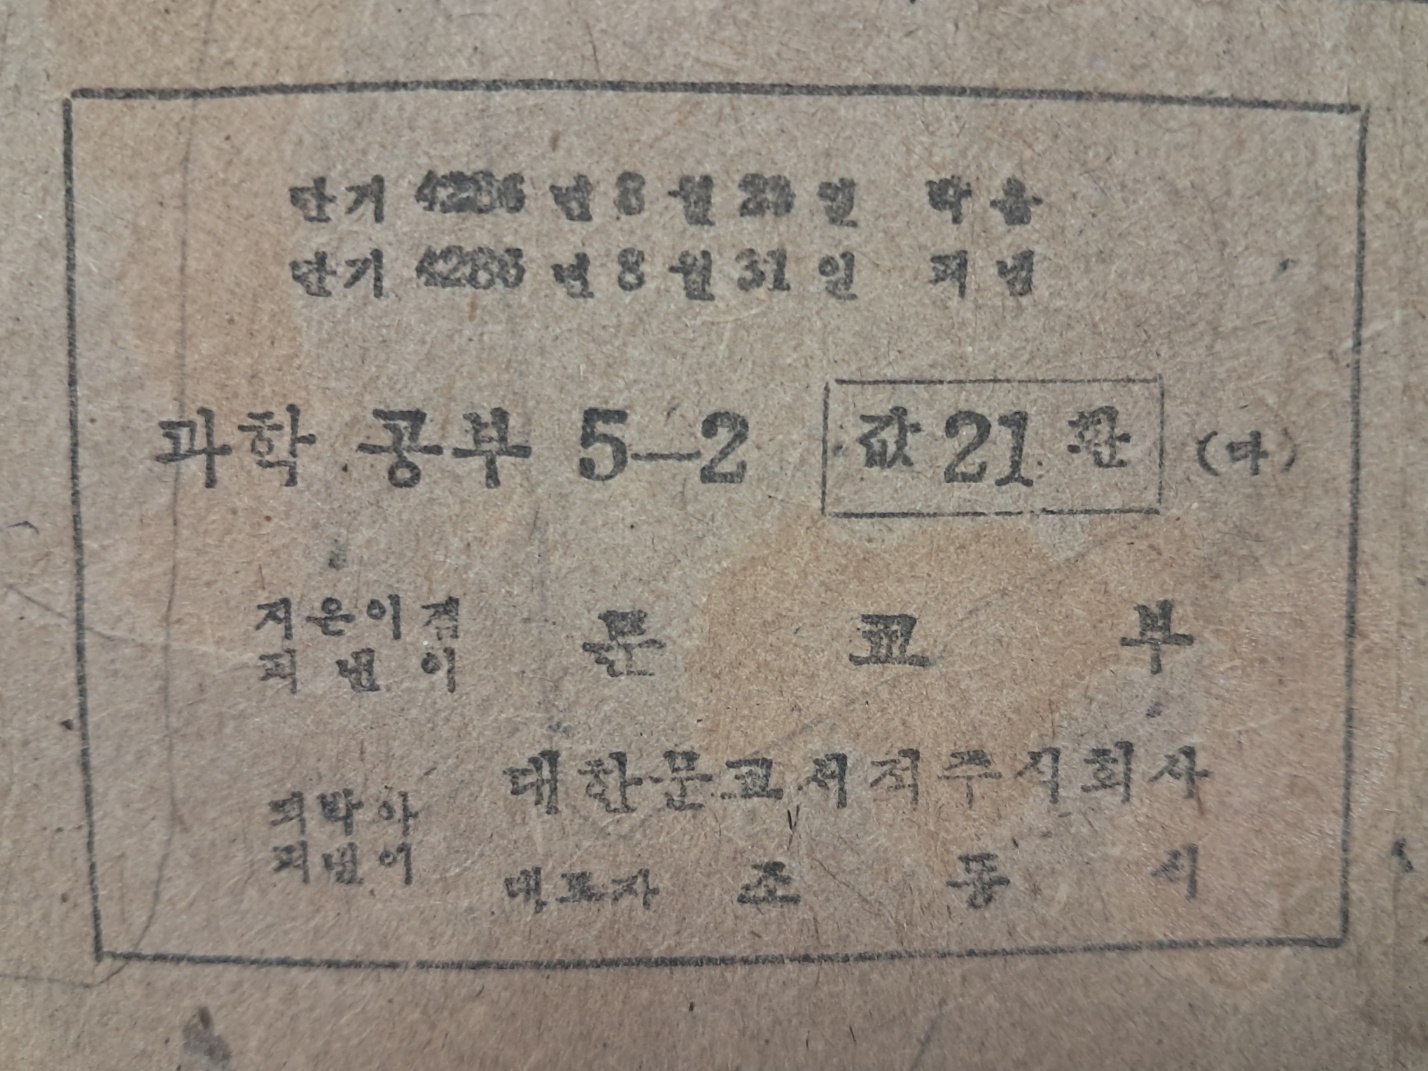 단기 4286년 8월 28일 박음
단기 4286년 8월 31일 펴냄
과학 공부 5—2 값 21환 (다)
지은이겸
펴낸이
문교부
대한문교서적주식회사
박아
펴낸이
대표자 조동식